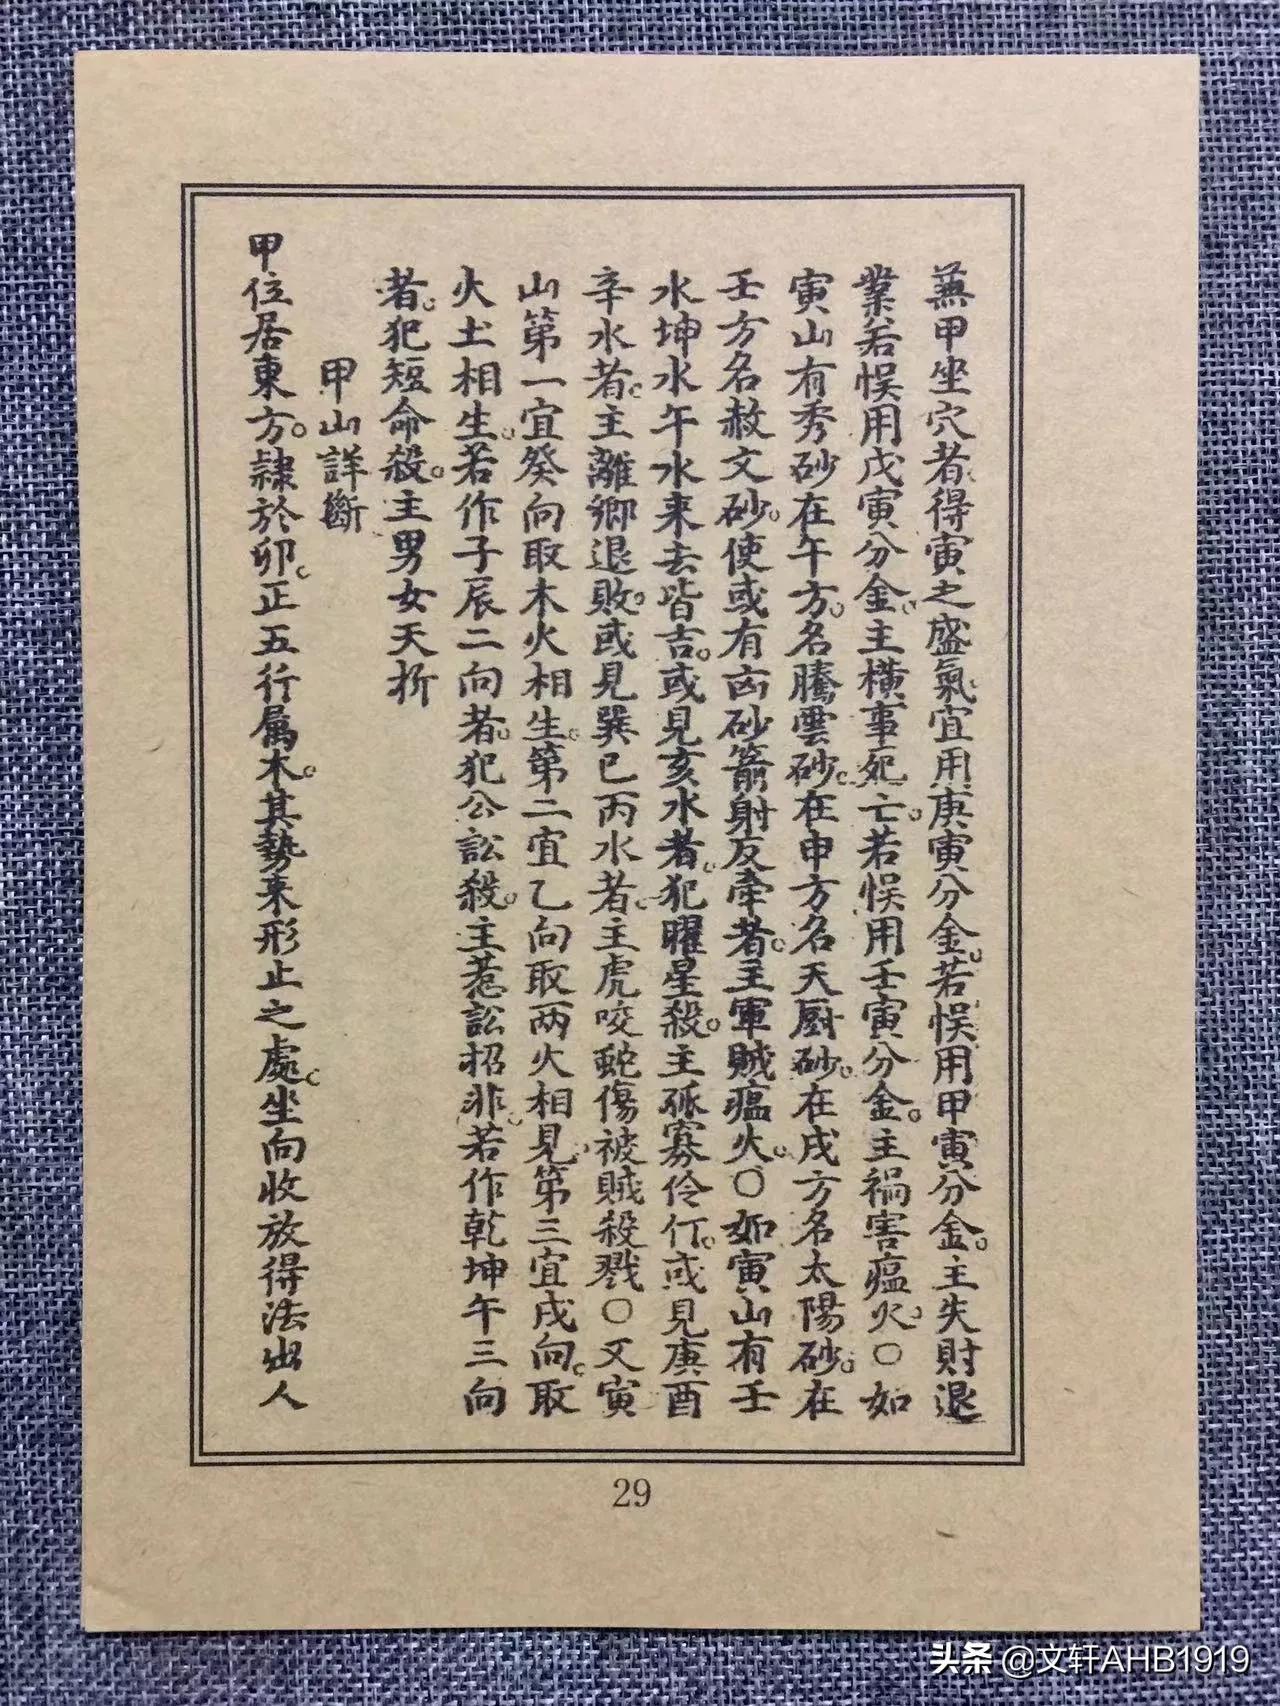 兼甲坐穴者得寅之盛氣宜用庚寅分金。若悮用甲寅分金。主失財退
業若悮用戊寅分金。主橫事死亡。若悮用壬寅分金。主禍害瘟火。○如
寅山有秀砂在午方。名騰雲砂。在申方名天厨砂。在戌方名太陽砂。在
壬方名赦文砂。使或有凶砂箭射反牽者。主軍賊瘟火。○如寅山有壬
水坤水午水来去皆吉。或見亥水者。犯曜星殺。主孤寡伶仃。或見庚酉
辛水者。主離鄉退敗。或見巽巳丙水者。主虎咬蛇傷被賊殺戮○又寅
山第一宜癸向取木火相生。第二宜乙向取两火相見。第三宜戌向。取
火土相生。若作子辰二向者。犯公訟殺。主惹訟招非。若作乾坤午三向
者。犯短命殺。主男女夭折
甲山詳斷
甲位居東方。隷於卯。正五行属木。其勢来形止之處。坐向收放得法出人
29
头条 @文轩AHB1919